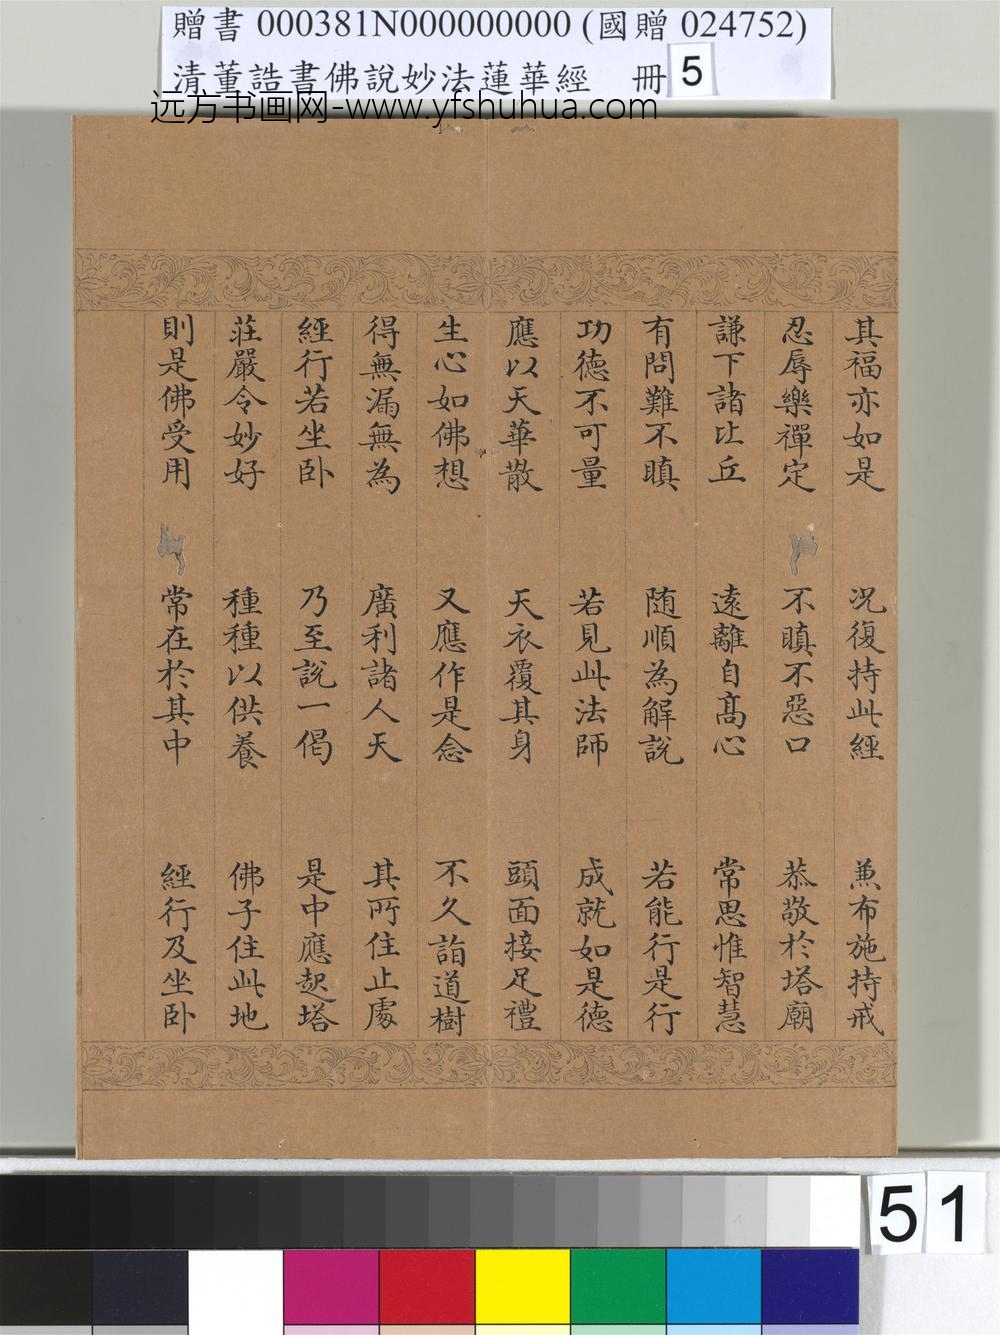 贈書 000381N000000000 (國贈 024752)
清董誥書佛說妙法蓮華經 冊 5
远方书画网-www.yfshuhua.com
其福亦如是 況復持此經 兼布施持戒
忍辱樂禪定 不瞋不惡口 恭敬於塔廟
謙下諸比丘 遠離自高心 常思惟智慧
有問難不瞋 隨順為解說 若能行是行
功德不可量 若見此法師 成就如是德
應以天華散 天衣覆其身 頭面接足禮
生心如佛想 又應作是念 不久詣道樹
得無漏無為 廣利諸人天 其所住止處
經行若坐臥 乃至說一偈 是中應起塔
莊嚴令妙好 種種以供養 佛子住此地
則是佛受用 常在於其中 經行及坐臥
51